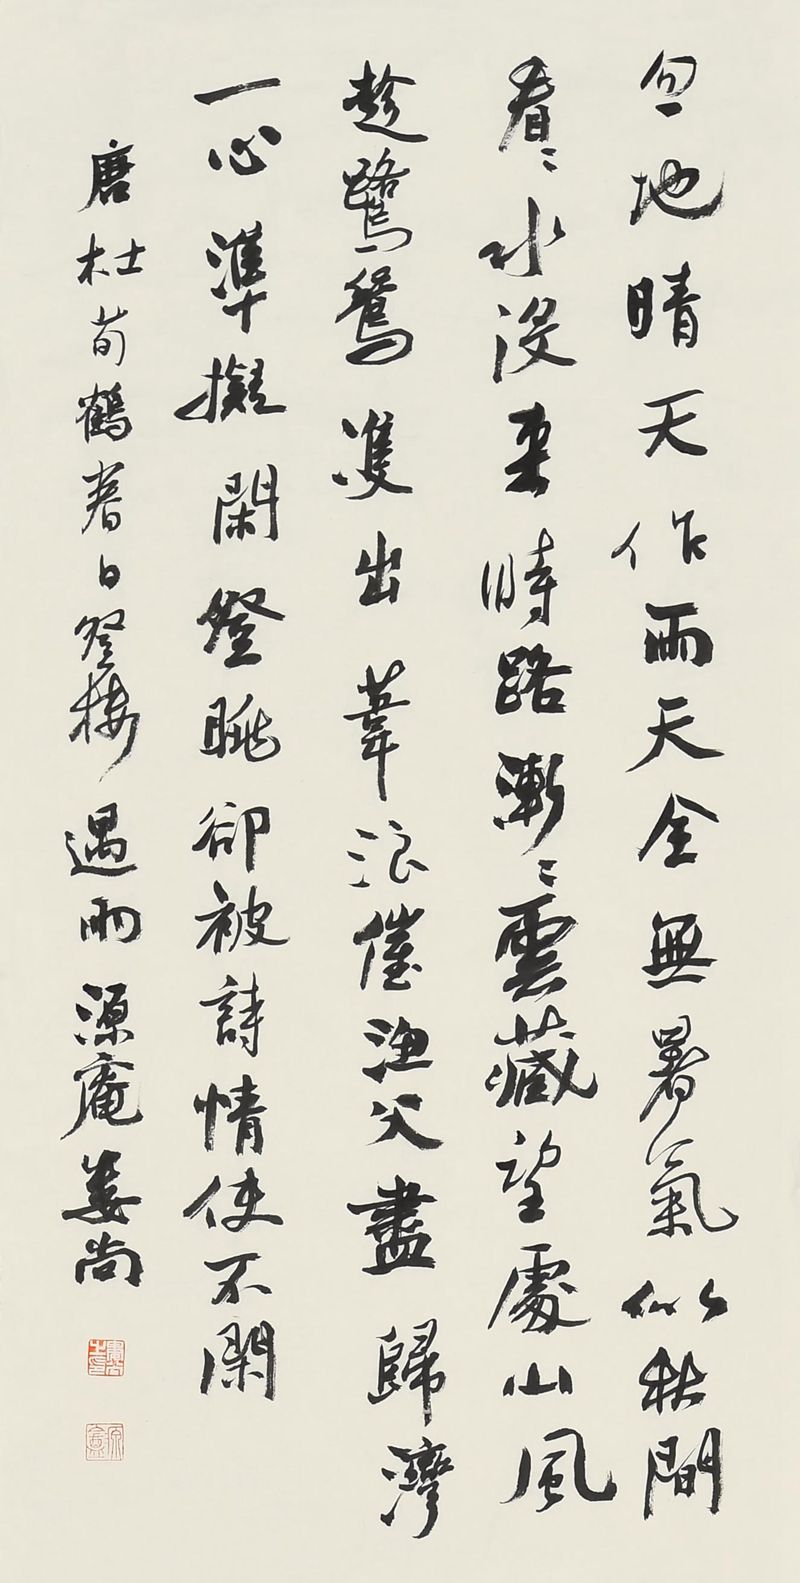 忽地晴天作雨天全無暑氣似秋間
看〻水没來時路漸〻雲藏望處山風
趁鷺鷥雙出葦浪催漁父盡歸灣
一心準擬閑登眺卻被詩情使不閑
唐杜荀鶴春日登樓遇雨源庵婁尚